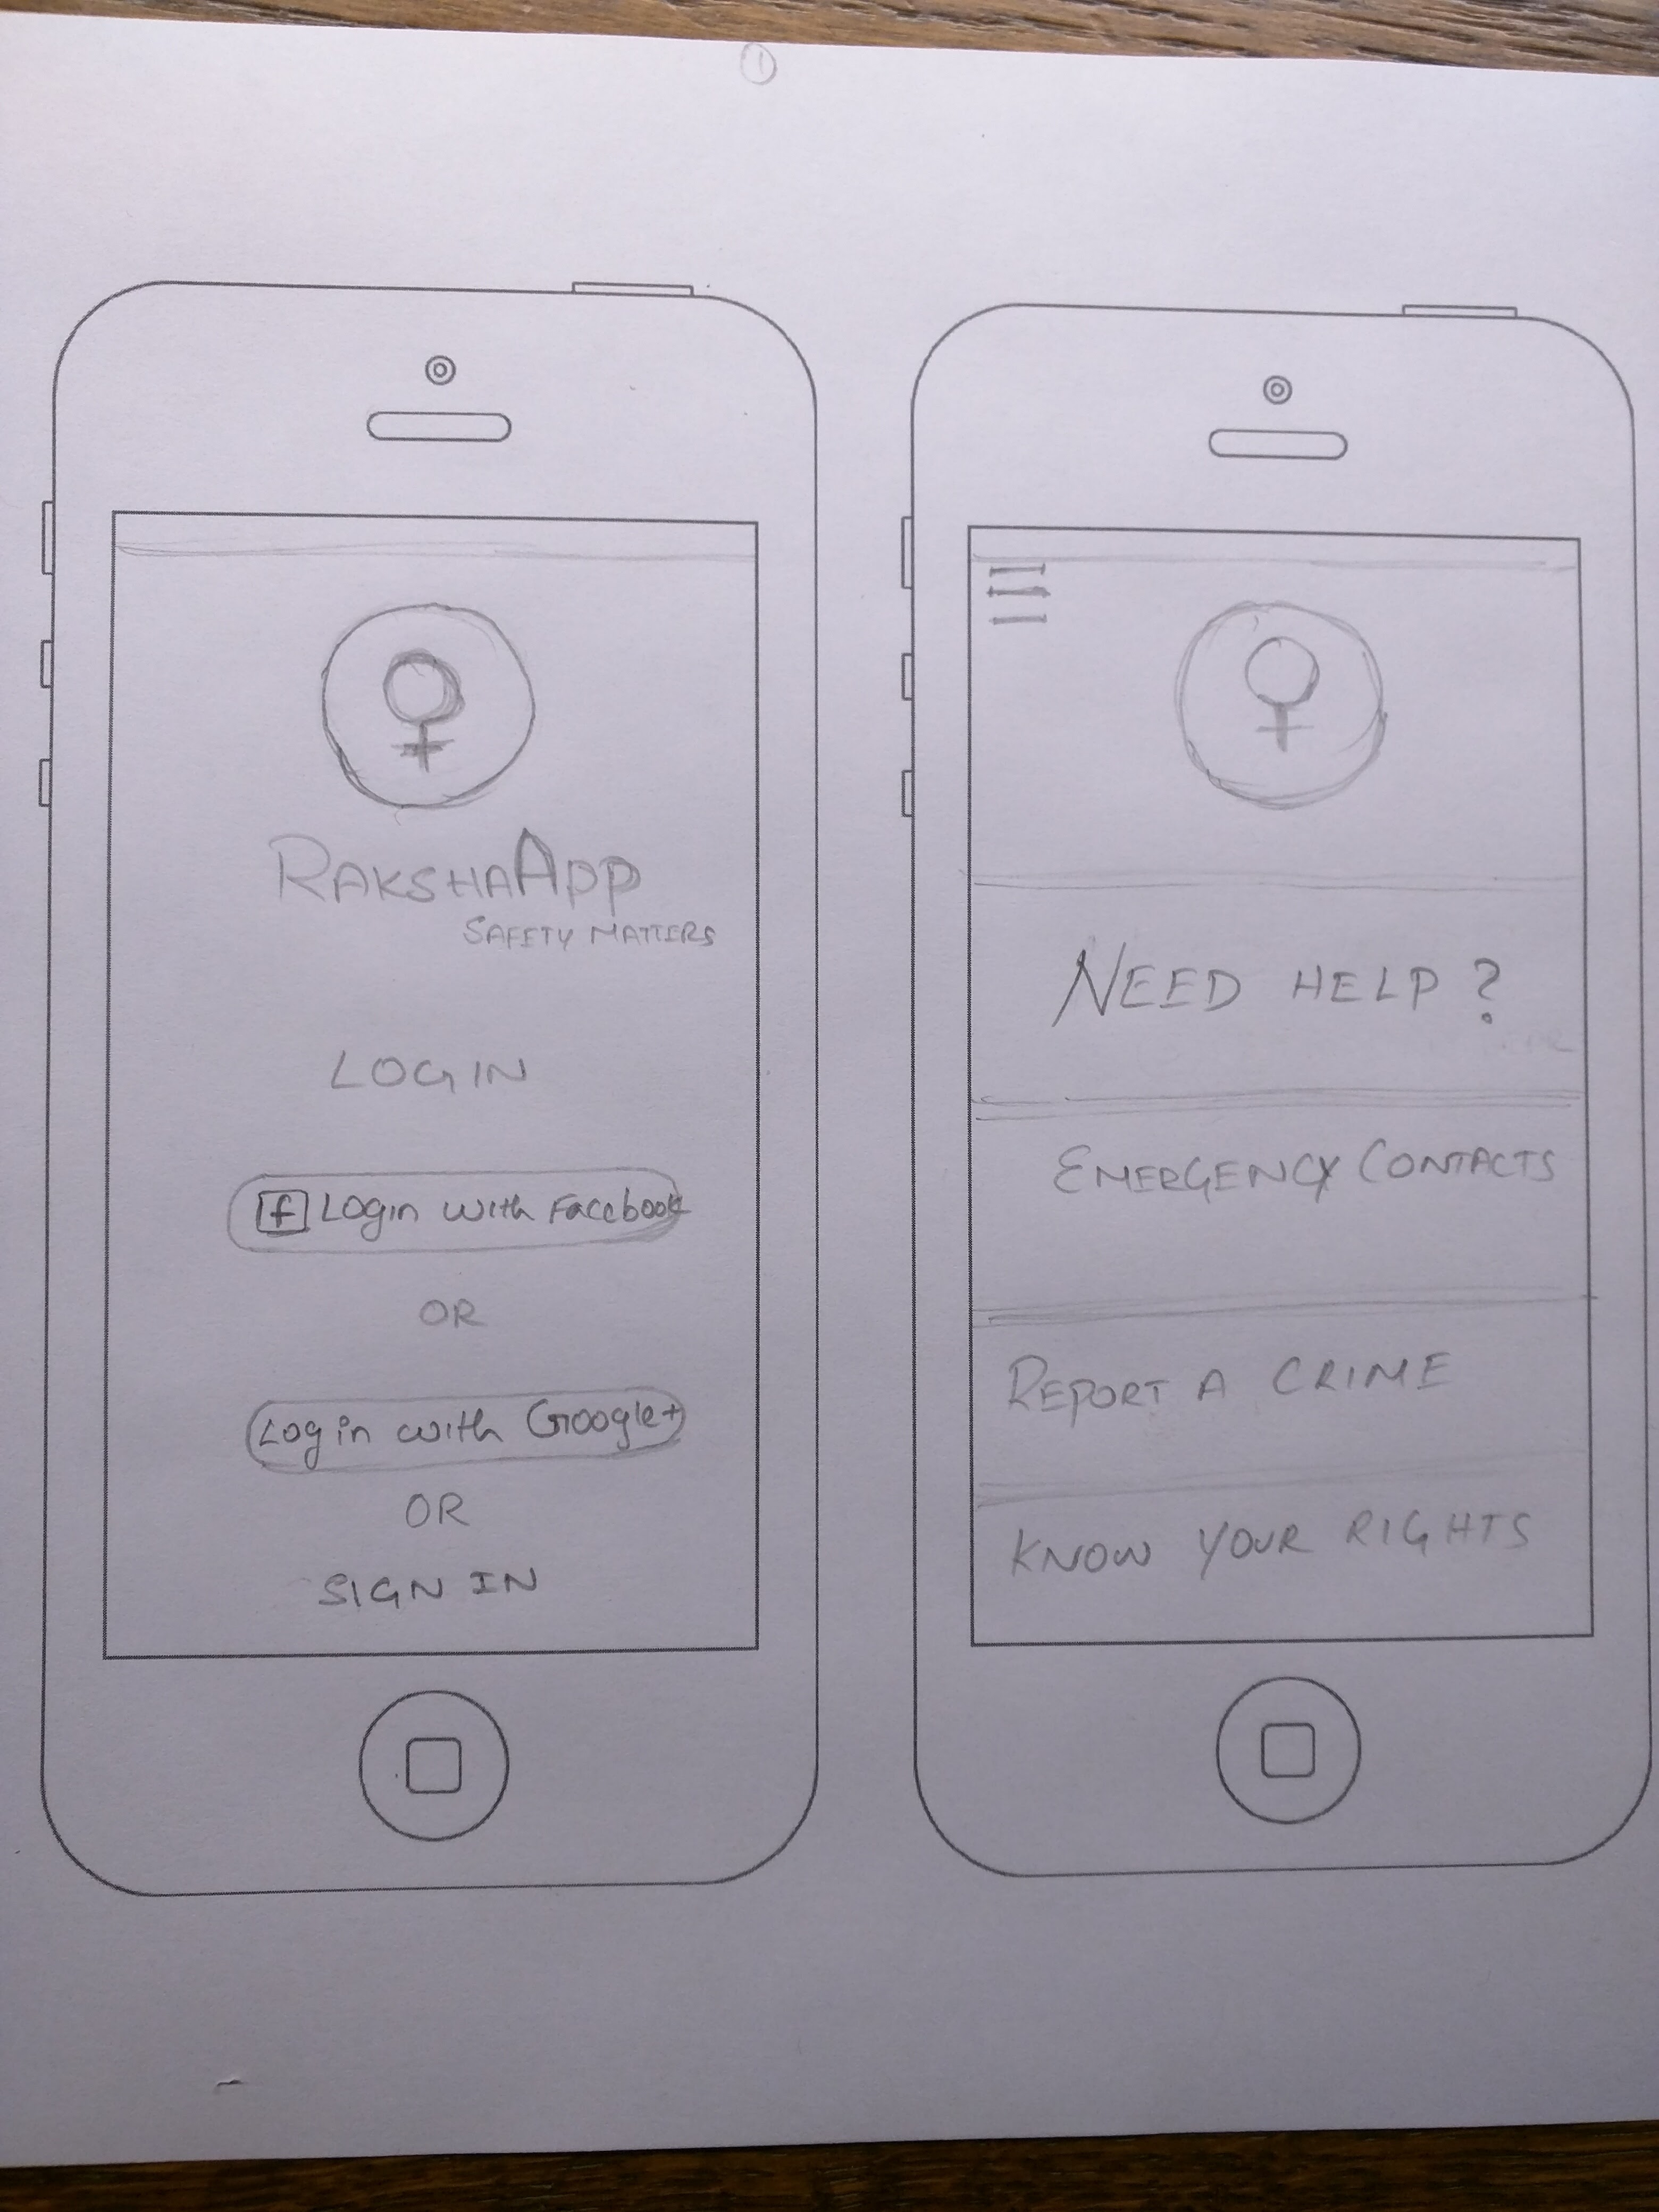 1
RAKSHAAPP
SAFETY MATTERS
LOGIN
f Login with Facebook
OR
Login with Google+
OR
SIGN IN
NEED HELP ?
EMERGENCY CONTACTS
REPORT A CRIME
KNOW YOUR RIGHTS